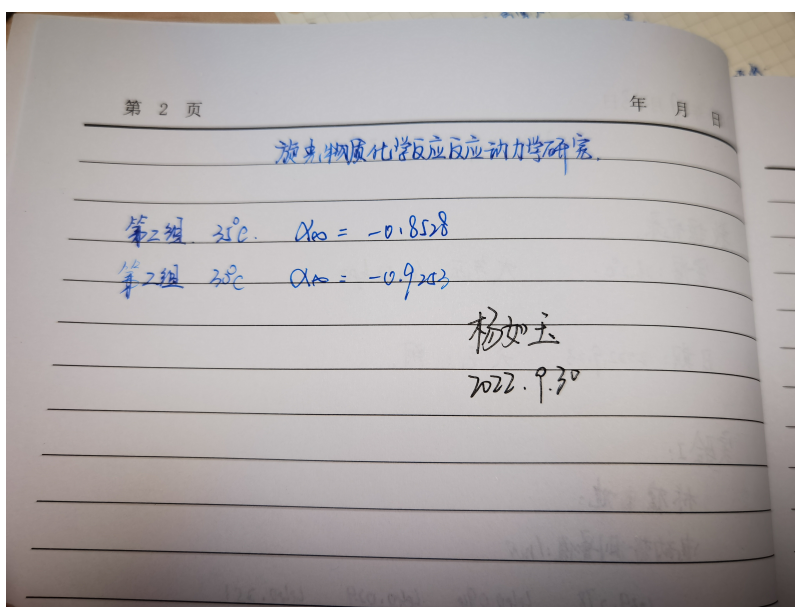 第 2 页
年 月 日
旋光物质化学反应反应动力学研究.
第二组. 35℃. α∞ = -0.8528
第二组 35℃ α∞ = -0.9253
杨如玉
2022.9.30